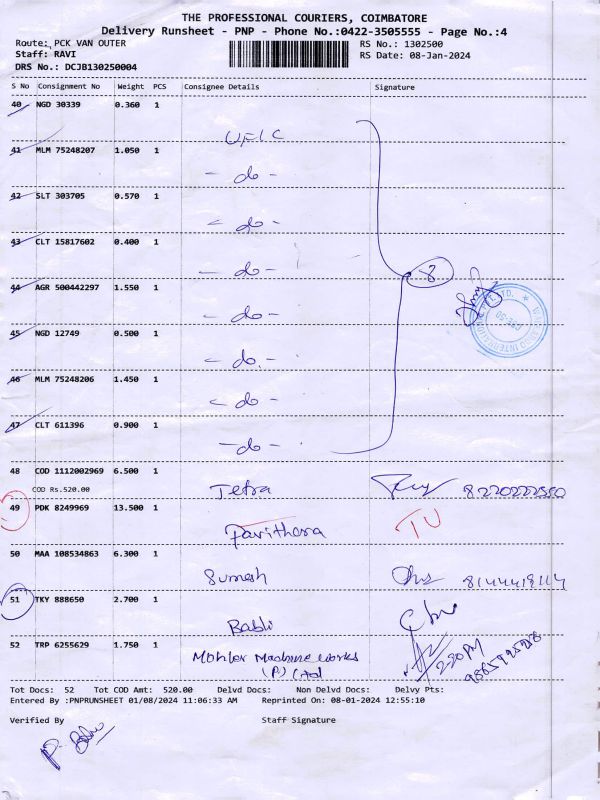 THE PROFESSIONAL COURIERS, COIMBATORE
Delivery Runsheet - PNP - Phone No.:0422-3505555 - Page No.:4
Route: PCK VAN OUTER RS No.: 1302500
Staff: RAVI RS Date: 08-Jan-2024
DRS No.: DCJB130250004
S No Consignment No Weight PCS Consignee Details Signature
40 NGD 30339 0.360 1
41 MLM 75248207 1.050 1 - do -
42 SLT 303705 0.570 1 - do -
43 CLT 15817602 0.400 1 - do - 8
44 AGR 500442297 1.550 1 - do -
45 NGD 12749 0.500 1 - do. -
46 MLM 75248206 1.450 1 - do -
47 CLT 611396 0.900 1 - do -
48 COD 1112002969 6.500 1 Tetra
COD Rs.520.00
49 PDK 8249969 13.500 1 Pavithera TU
50 MAA 108534863 6.300 1 Sumesh
51 TKY 888650 2.700 1 Babli
52 TRP 6255629 1.750 1 Mohler Machine works
(P) Ltd 2.30 PM
Tot Docs: 52 Tot COD Amt: 520.00 Delvd Docs: Non Delvd Docs: Delvy Pts:
Entered By :PNPRUNSHEET 01/08/2024 11:06:33 AM Reprinted On: 08-01-2024 12:55:10
Verified By Staff Signature